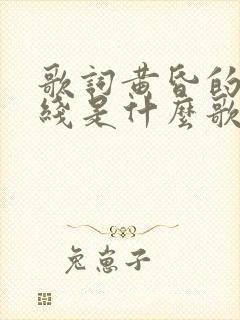 歌詞黃昏的
綫是什麼歌
兔崽子